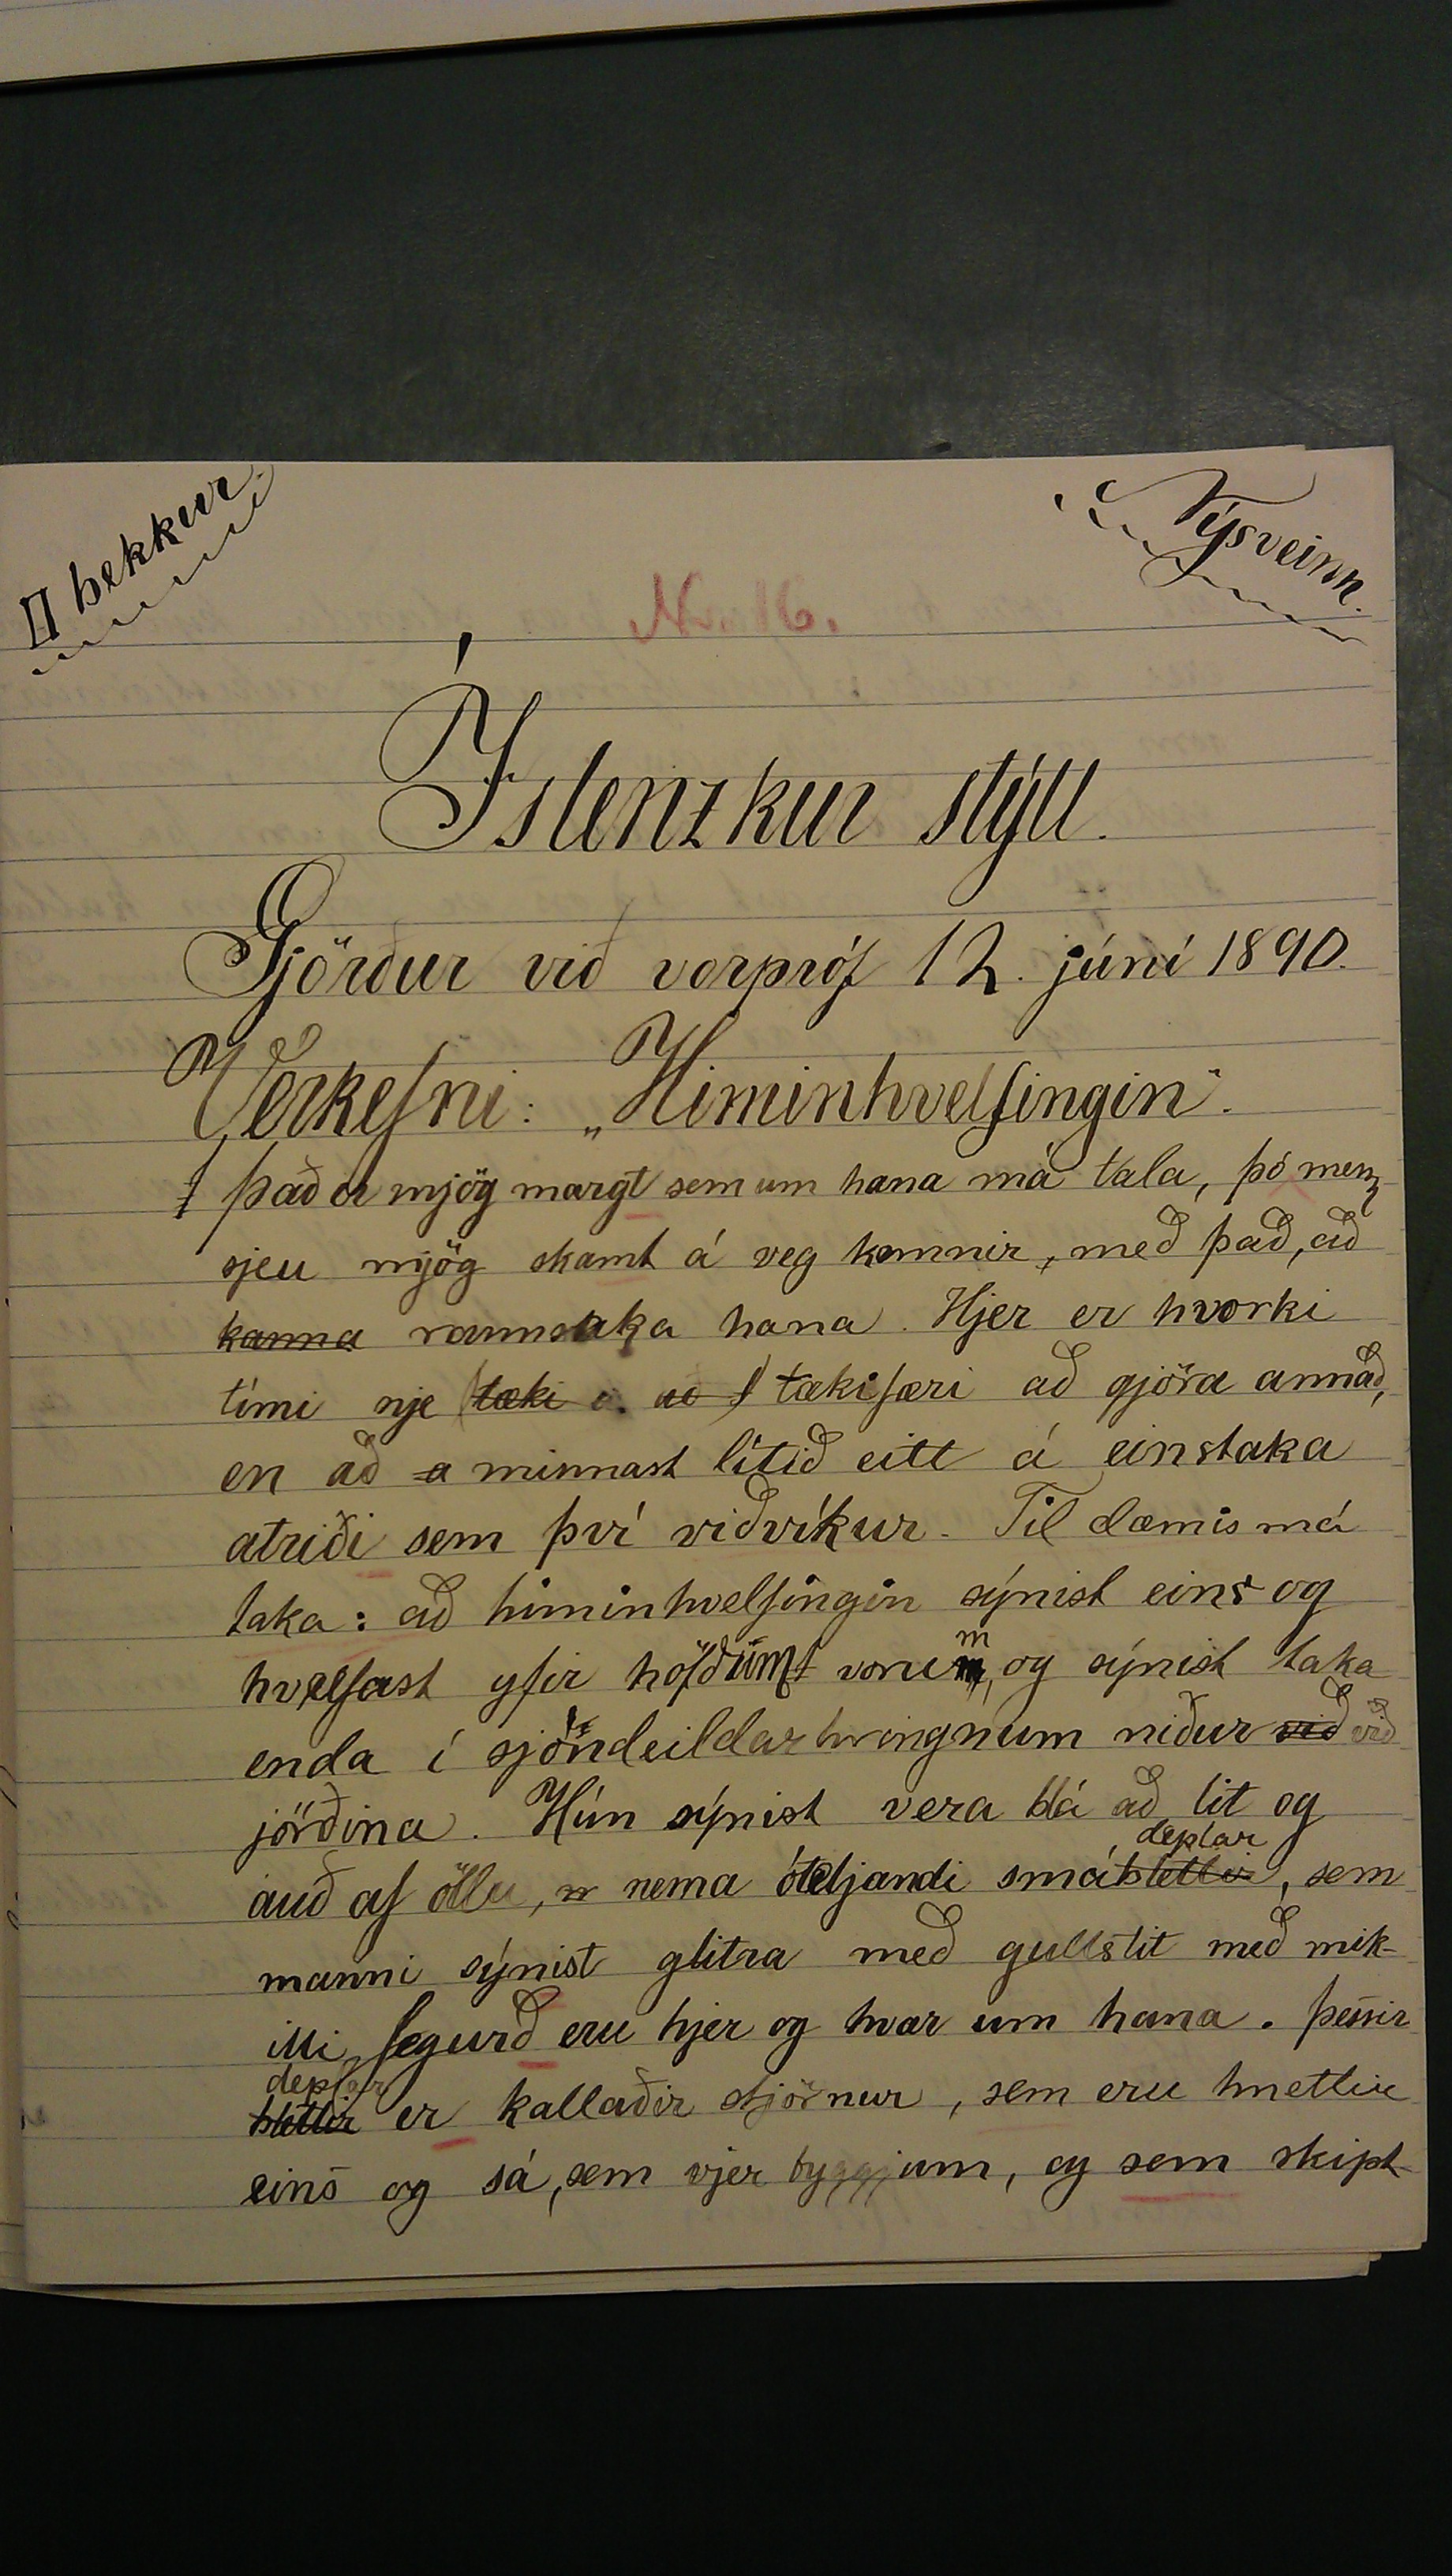 II bekkur.
Nýsveinn.
No. 16.
Íslenzkur stýll.
Gjörður við vorpróf 12. júní 1890.
Verkefni: „Himinhvelfingin“.
Það er mjög margt sem um hana má tala, þó menn
sjeu mjög skamt á veg komnir, með það, að
kanna rannsaka hana. Hjer er hvorki
tími nje tæki tækifæri að gjöra annað,
en að a minnast lítið eitt á einstaka
atriði sem því viðvíkur. Til dæmis má
taka: að himinhvelfingin sýnist eins og
hvelfast yfir höfðum vorum, og sýnist taka
enda í sjóndeildarhringnum niður við við
jörðina. Hún sýnist vera blá að lit og
auð af öllu, nema óteljandi smáblettir deplar, sem
manni sýnist glitra með gullslit með mik-
illi fegurð eru hjer og hvar um hana. Þessir
blettir deplar er kallaðir stjörnur, sem eru hnettir
eins og sá, sem vjer byggjum, og sem skipt